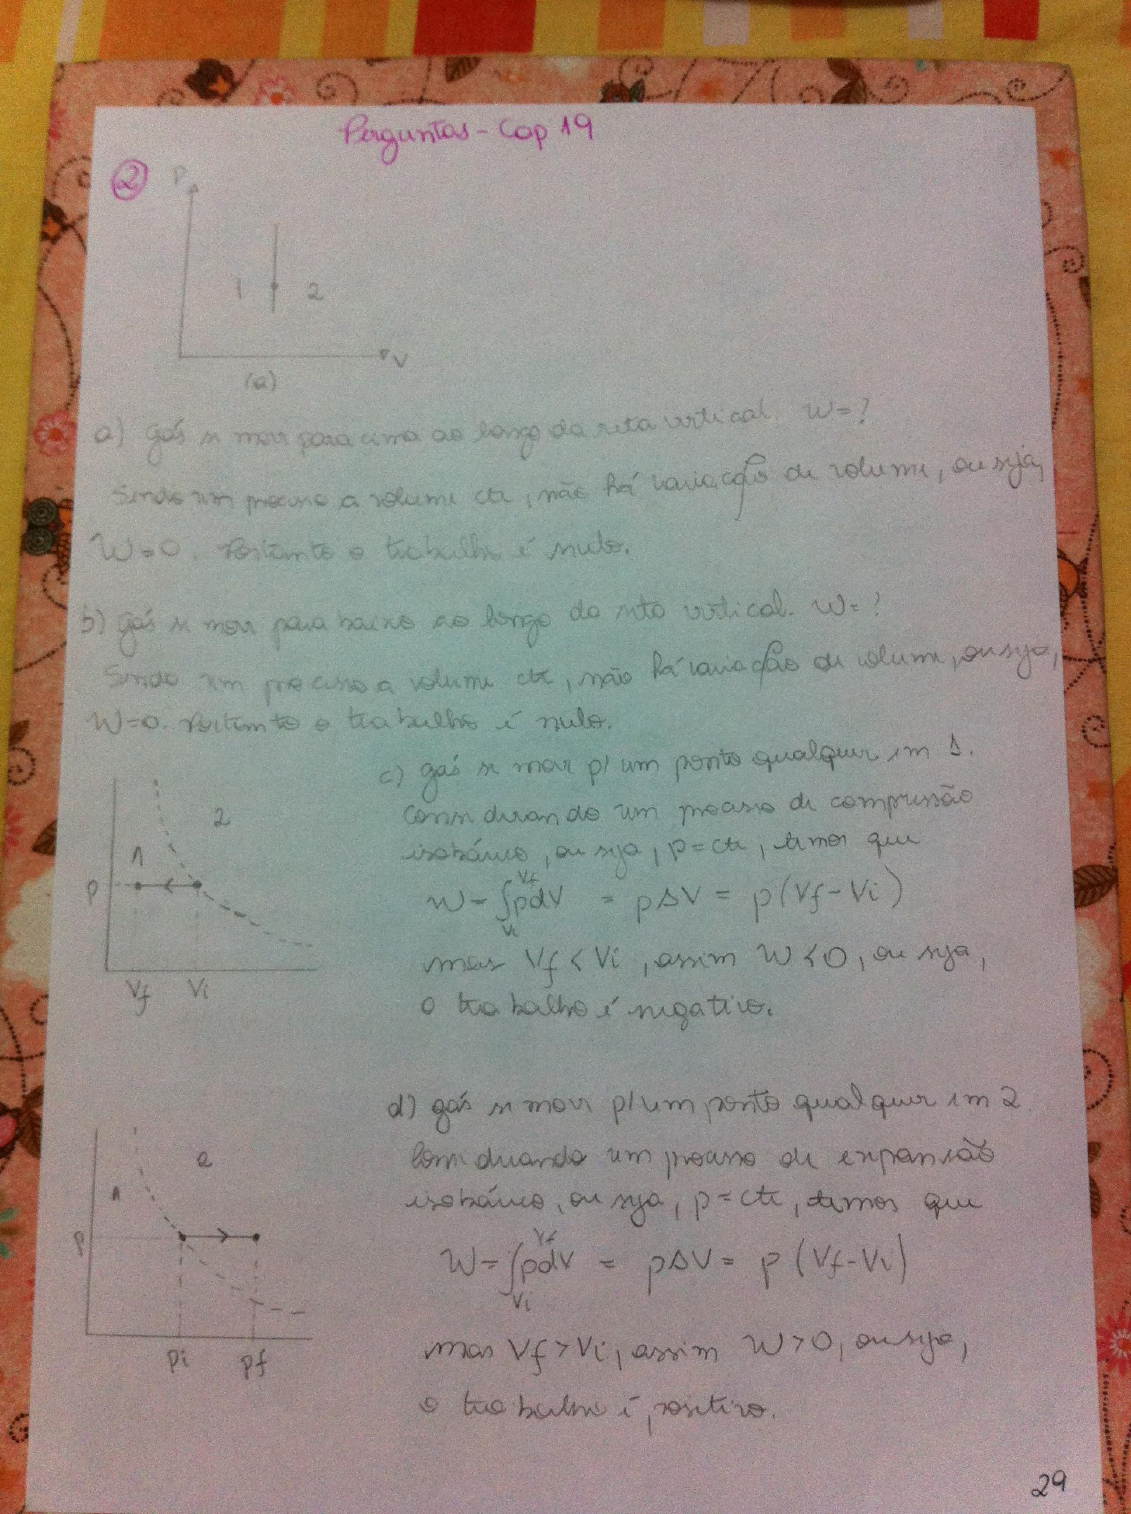 Perguntas - Cap 19
2
P
1 2
V
(a)
a) gás se move para cima ao longo da reta vertical. W=?
Sendo um processo a volume cte, não há variação de volume, ou seja,
W=0. Portanto o trabalho é nulo.
b) gás se move para baixo ao longo da reta vertical. W=?
Sendo um processo a volume cte, não há variação de volume, ou seja,
W=0. Portanto o trabalho é nulo.
c) gás se move p/ um ponto qualquer em 1.
Considerando um processo de compressão
isobárico, ou seja, p=cte, temos que
W=∫_Vi^Vf pdV = pΔV = p(Vf-Vi)
mas Vf<Vi, assim W<0, ou seja,
o trabalho é negativo.
2
1
p
Vf Vi
d) gás se move p/ um ponto qualquer em 2
Considerando um processo de expansão
isobárico, ou seja, p=cte, temos que
W=∫_Vi^Vf pdV = pΔV = p(Vf-Vi)
mas Vf>Vi, assim W>0, ou seja,
o trabalho é positivo.
2
1
p
pi pf
29